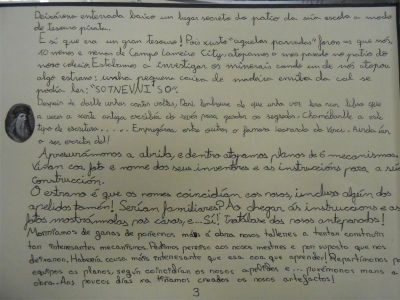 Deixárona enterrada baixo un lugar secreto do patio da súa escola a modo
de tesouro pirata.
E si que era un gran tesouro! Pois xusto "aqueles parvadas" foron as que nós,
10 nenos e nenas de Campo Lameiro City, atopamos o mes pasado no patio do
noso colexio. Estabamos a investigar os minerais cando un de nós atopou
algo estraño: unha pequena caixa de madeira enriba da cal se
podía ler: "SOTNEVNI SO".
Despois de darlle unhas cantas voltas, decatámonos de que unha vez lera nun libro que
a xente antiga escribía do revés para gardar os segredos. Chamábanlle a este
tipo de escritura Empregábaa entre outros o famoso leonardo da Vinci. Aínda
o ser escrita del!
Apresurámonos a abrila, e dentro atopamos planos de 6 mecanismos.
Viñan coa foto e nome dos seus inventores e as instruccións para a súa
construcción.
O estraño é que os nomes coincidían cos nosos, incluso algún dos
apelidos tamén! Serían familiares? Ao chegar ás instruccións e as
fotos mostrámolas nas casas, e... Sí! Tratábase dos nosos antepasados!
Morriamos de ganas de poñernos mans á obra nosos talleres a tentar construír
tan interesantes mecanismos. Pedimos permiso aos nosos mestres e por suposto que nos
deixaron. Habería cousa máis interesante que esa coa que aprender! Repartímonos por
equipos os planos, según coincidían os nosos apelidos e... puxémonos mans á
obra. Aos poucos días xa tiñamos creados os nosos artefactos!
3